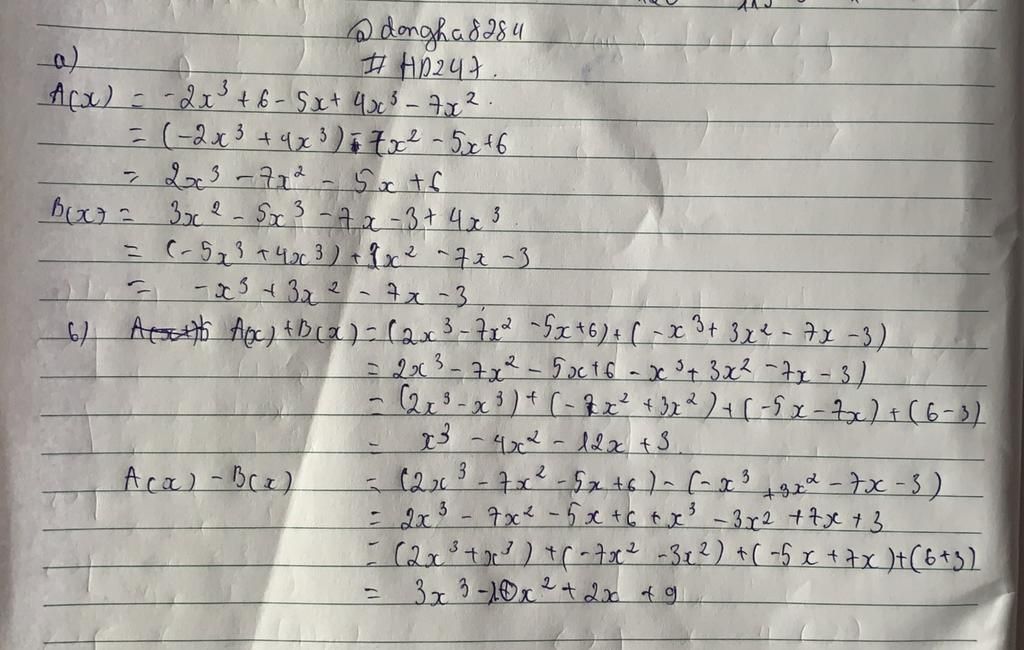 @dongha8284
a)
# HD247.
A(x) = -2x³ + 6 - 5x + 4x³ - 7x².
= (-2x³ + 4x³) - 7x² - 5x + 6
= 2x³ - 7x² - 5x + 6
B(x) = 3x² - 5x³ - 7x - 3 + 4x³.
= (-5x³ + 4x³) + 3x² - 7x - 3
= -x³ + 3x² - 7x - 3
b) A(x) + B(x) = (2x³ - 7x² - 5x + 6) + (-x³ + 3x² - 7x - 3)
= 2x³ - 7x² - 5x + 6 - x³ + 3x² - 7x - 3)
= (2x³ - x³) + (-7x² + 3x²) + (-5x - 7x) + (6 - 3)
= x³ - 4x² - 12x + 3
A(x) - B(x) = (2x³ - 7x² - 5x + 6) - (-x³ + 3x² - 7x - 3)
= 2x³ - 7x² - 5x + 6 + x³ - 3x² + 7x + 3
= (2x³ + x³) + (-7x² - 3x²) + (-5x + 7x) + (6 + 3)
= 3x³ - 10x² + 2x + 9